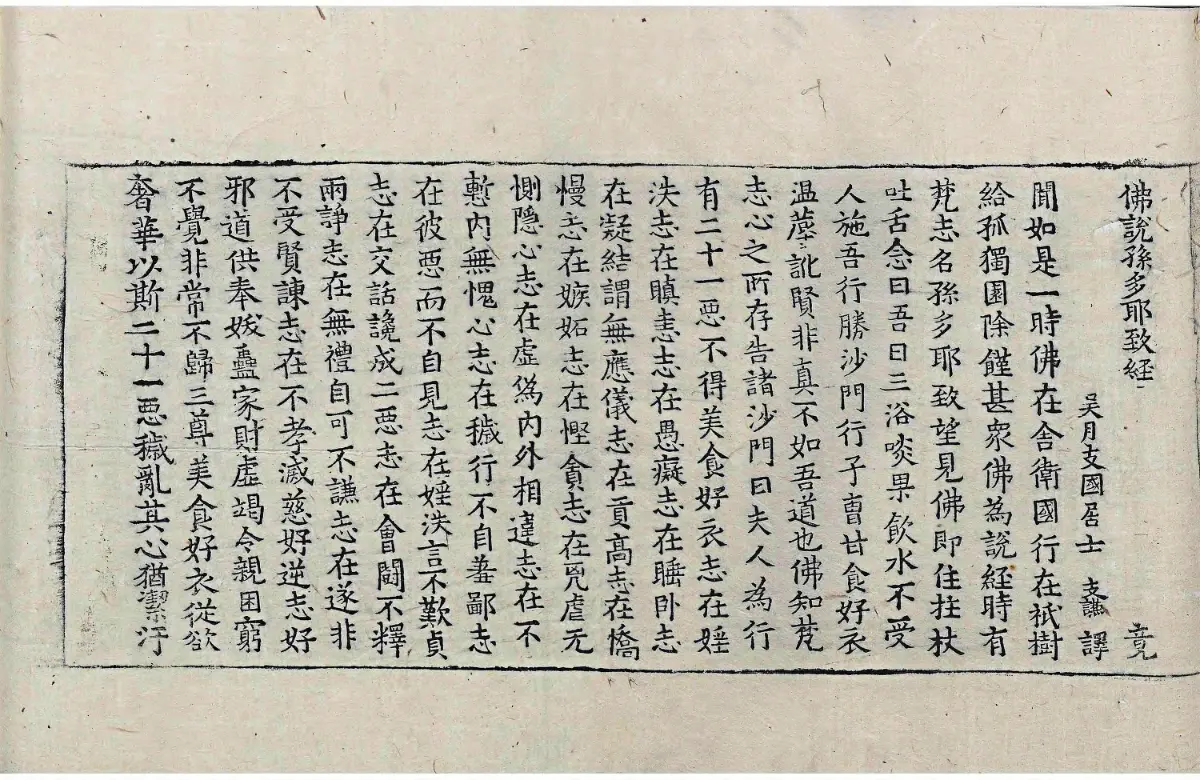 佛說孫多耶致経 竟
吳月支國居士 支謙 譯
聞如是一時佛在舍衛國行在祇樹
給孤獨園除饉甚衆佛為說経時有
梵志名孫多耶致望見佛即住拄杖
吐舌念曰吾日三浴啖果飲水不受
人施吾行勝沙門行子曹甘食好衣
温蓐訿賢非真不如吾道也佛知梵
志心之所存告諸沙門曰夫人為行
有二十一惡不得美食好衣志在婬
泆志在瞋恚志在愚癡志在睡卧志
在凝結謂無應儀志在貢高志在憍
慢志在嫉妬志在慳貪志在兇虐无
惻隐心志在虛偽内外相違志在不
慙内無愧心志在穢行不自羞鄙志
在彼惡而不自見志在婬泆言不歎貞
志在交話讒成二惡志在會鬪不釋
兩諍志在無禮自可不讌志在遂非
不受賢諫志在不孝滅慈好逆志好
邪道供奉妭蠱家財虛竭令親困窮
不覺非常不歸三尊美食好衣従欲
奢華以斯二十一惡穢亂其心猶潔汙